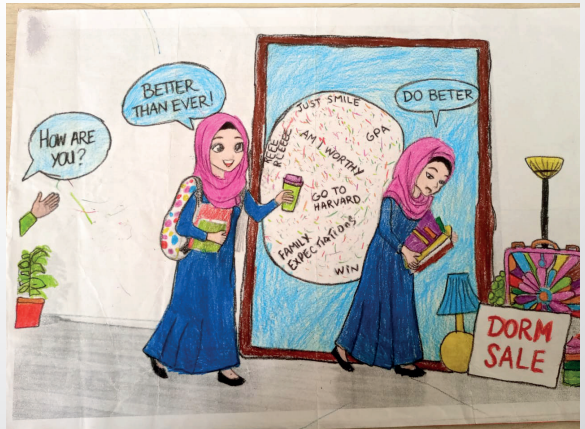 HOW ARE
YOU?
BETTER
THAN EVER!
JUST SMILE
GPA
AM I WORTHY
GO TO
HARVARD
FAMILY
EXPECTIATIONS
WIN
DO BETER
DORM
SALE